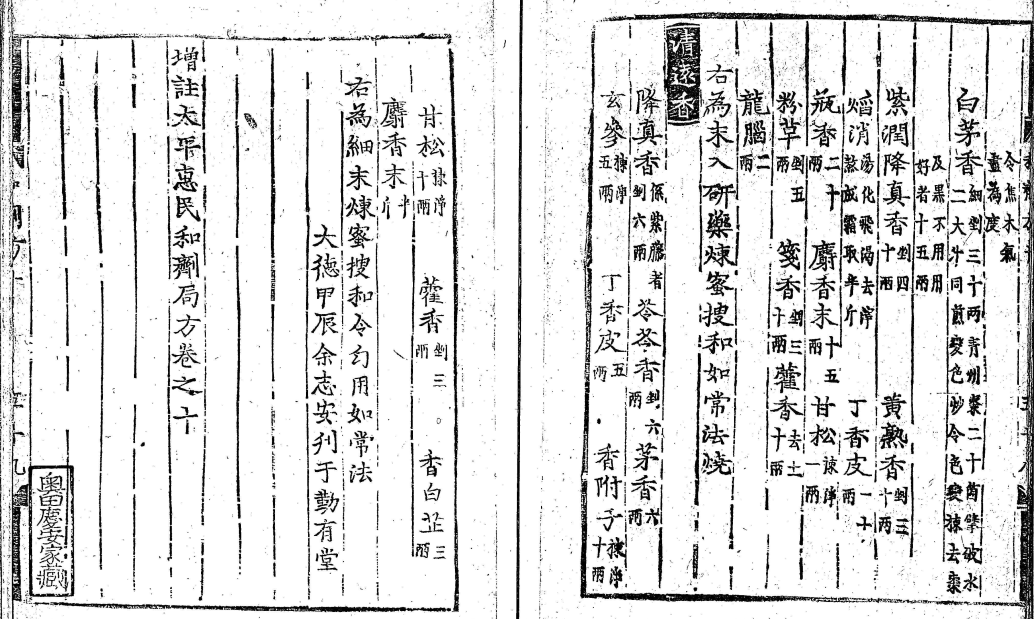 令焦木氣
盡為度
白茅香細剉三十兩青州棗二十箇擘破水
二大升同煎變色炒令色變揀去棗
及黑不用用
好者十五兩
紫潤降真香剉四十兩
黃熟香剉三十兩
焰消湯化飛濾去滓熬成霜取半斤
丁香皮一十兩
瓶香二十兩
麝香末十五兩
甘松揀淨一兩
粉草剉五兩
箋香剉三十兩
藿香去土十兩
龍腦二兩
右為末入研藥煉蜜搜和如常法燒
清遠香
降真香係紫藤者剉六兩
苓苓香剉六兩
茅香六兩
玄參揀淨五兩
丁香皮五兩
香附子揀淨十兩
甘松揀淨十兩
藿香剉三兩
香白芷三兩
麝香末半斤
右為細末煉蜜搜和令勻用如常法
大德甲辰余志安刋于勤有堂
增註太平惠民和劑局方卷之十
五十九
奧田慶安家藏